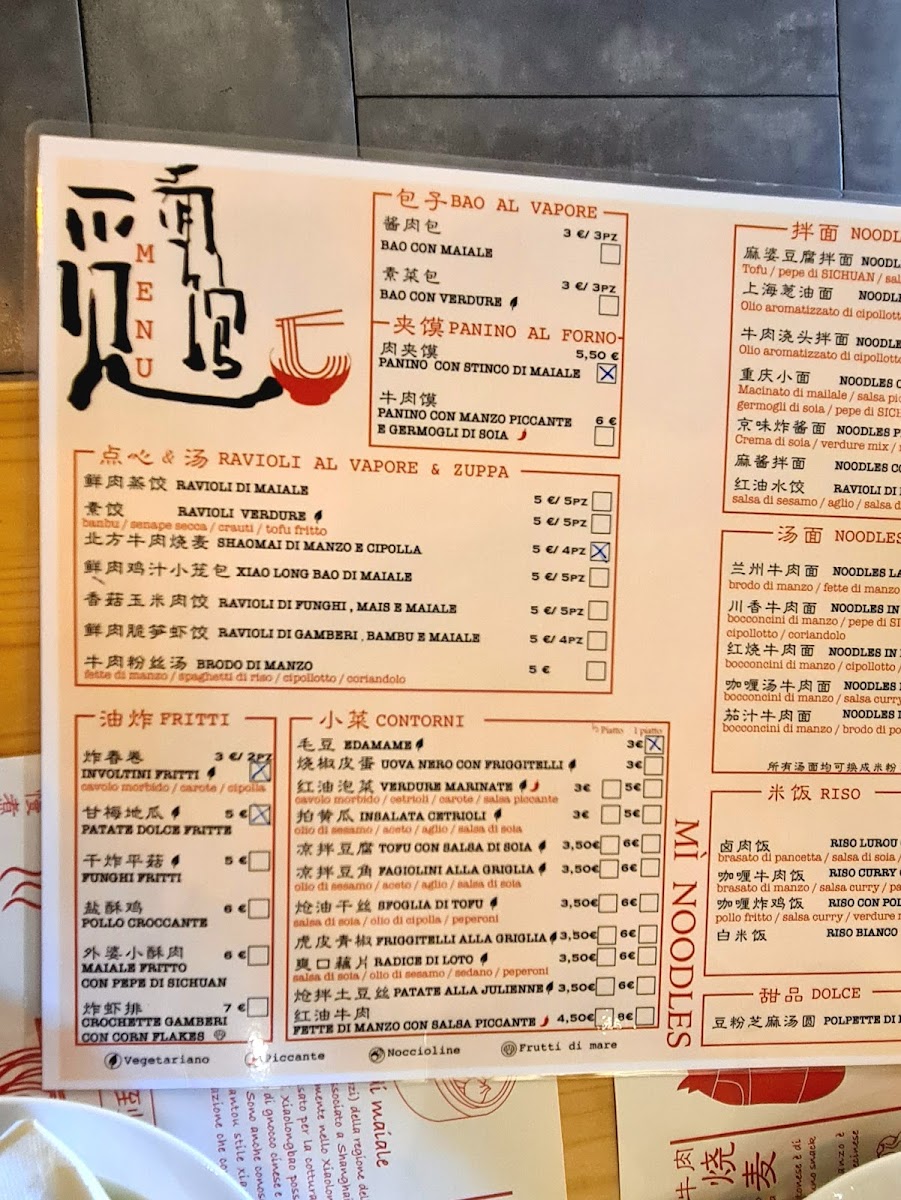 觅面馆
MENU
包子 BAO AL VAPORE
酱肉包
3 €/ 3PZ
BAO CON MAIALE
素菜包
3 €/ 3PZ
BAO CON VERDURE
夹馍 PANINO AL FORNO
肉夹馍
5,50 €
PANINO CON STINCO DI MAIALE
牛肉馍
PANINO CON MANZO PICCANTE 6 €
E GERMOGLI DI SOIA
点心 & 汤 RAVIOLI AL VAPORE & ZUPPA
鲜肉蒸饺 RAVIOLI DI MAIALE 5 €/ 5PZ
素饺 RAVIOLI VERDURE 5 €/ 5PZ
banbu / senape secca / crauti / tofu fritto
北方牛肉烧麦 SHAOMAI DI MANZO E CIPOLLA 5 €/ 4PZ
鲜肉鸡汁小笼包 XIAO LONG BAO DI MAIALE 5 €/ 5PZ
香菇玉米肉饺 RAVIOLI DI FUNGHI , MAIS E MAIALE 5 €/ 5PZ
鲜肉脆笋虾饺 RAVIOLI DI GAMBERI , BAMBU E MAIALE 5 €/ 4PZ
牛肉粉丝汤 BRODO DI MANZO 5 €
fette di manzo / spaghetti di riso / cipollotto / coriandolo
油炸 FRITTI
炸春卷 3 €/ 2PZ
INVOLTINI FRITTI
cavolo morbido / carote / cipolla
甘梅地瓜 5 €
PATATE DOLCE FRITTE
干炸平菇 5 €
FUNGHI FRITTI
盐酥鸡 6 €
POLLO CROCCANTE
外婆小酥肉 6 €
MAIALE FRITTO
CON PEPE DI SICHUAN
炸虾排 7 €
CROCHETTE GAMBERI
CON CORN FLAKES
小菜 CONTORNI
½ Piatto 1 piatto
毛豆 EDAMAME 3€
烧椒皮蛋 UOVA NERO CON FRIGGITELLI 3€
红油泡菜 VERDURE MARINATE 3€ 5€
cavolo morbido / cetrioli / carote / salsa piccante
拍黄瓜 INSALATA CETRIOLI 3€ 5€
olio di sesamo / aceto / aglio / salsa di soia
凉拌豆腐 TOFU CON SALSA DI SOIA 3,50€ 6€
凉拌豆角 FAGIOLINI ALLA GRIGLIA 3,50€ 6€
olio di sesamo / aceto / aglio / salsa di soia
炝油干丝 SFOGLIA DI TOFU 3,50€ 6€
salsa di soia / olio di cipolla / peperoni
虎皮青椒 FRIGGITELLI ALLA GRIGLIA 3,50€ 6€
爽口藕片 RADICE DI LOTO 3,50€ 6€
salsa di soia / olio di sesamo / sedano / peperoni
炝拌土豆丝 PATATE ALLA JULIENNE 3,50€ 6€
红油牛肉
FETTE DI MANZO CON SALSA PICCANTE 4,50€ 8€
Vegetariano Piccante Noccioline Frutti di mare
MÌ NOODLES
拌面 NOODL
麻婆豆腐拌面 NOODL
Tofu / pepe di SICHUAN / sal
上海葱油面 NOODLE
Olio aromatizzato di cipollott
牛肉浇头拌面 NOODLE
Olio aromatizzato di cipollotto
重庆小面 NOODLES C
Macinato di maiale / salsa pic
germogli di soia / pepe di SICH
京味炸酱面 NOODLES P
Crema di soia / verdure mix /
麻酱拌面 NOODLES CO
红油水饺 RAVIOLI DI
salsa di sesamo / aglio / salsa d
汤面 NOODLES
兰州牛肉面 NOODLES LA
brodo di manzo / fette di manzo
川香牛肉面 NOODLES IN
bocconcini di manzo / pepe di SI
cipollotto / coriandolo
红烧牛肉面 NOODLES IN
bocconcini di manzo / cipollotto /
咖喱汤牛肉面 NOODLES
bocconcini di manzo / salsa curry
茄汁牛肉面 NOODLES
bocconcini di manzo / brodo di po
所有汤面均可换成米粉
米饭 RISO
卤肉饭 RISO LUROU
brasato di pancetta / salsa di soia /
咖喱牛肉饭 RISO CURRY
brasato di manzo / salsa curry / pa
咖喱炸鸡饭 RISO CON POL
pollo fritto / salsa curry / verdure
白米饭 RISO BIANCO
甜品 DOLCE
豆粉芝麻汤圆 POLPETTE DI
di maiale
牛肉
烧麦